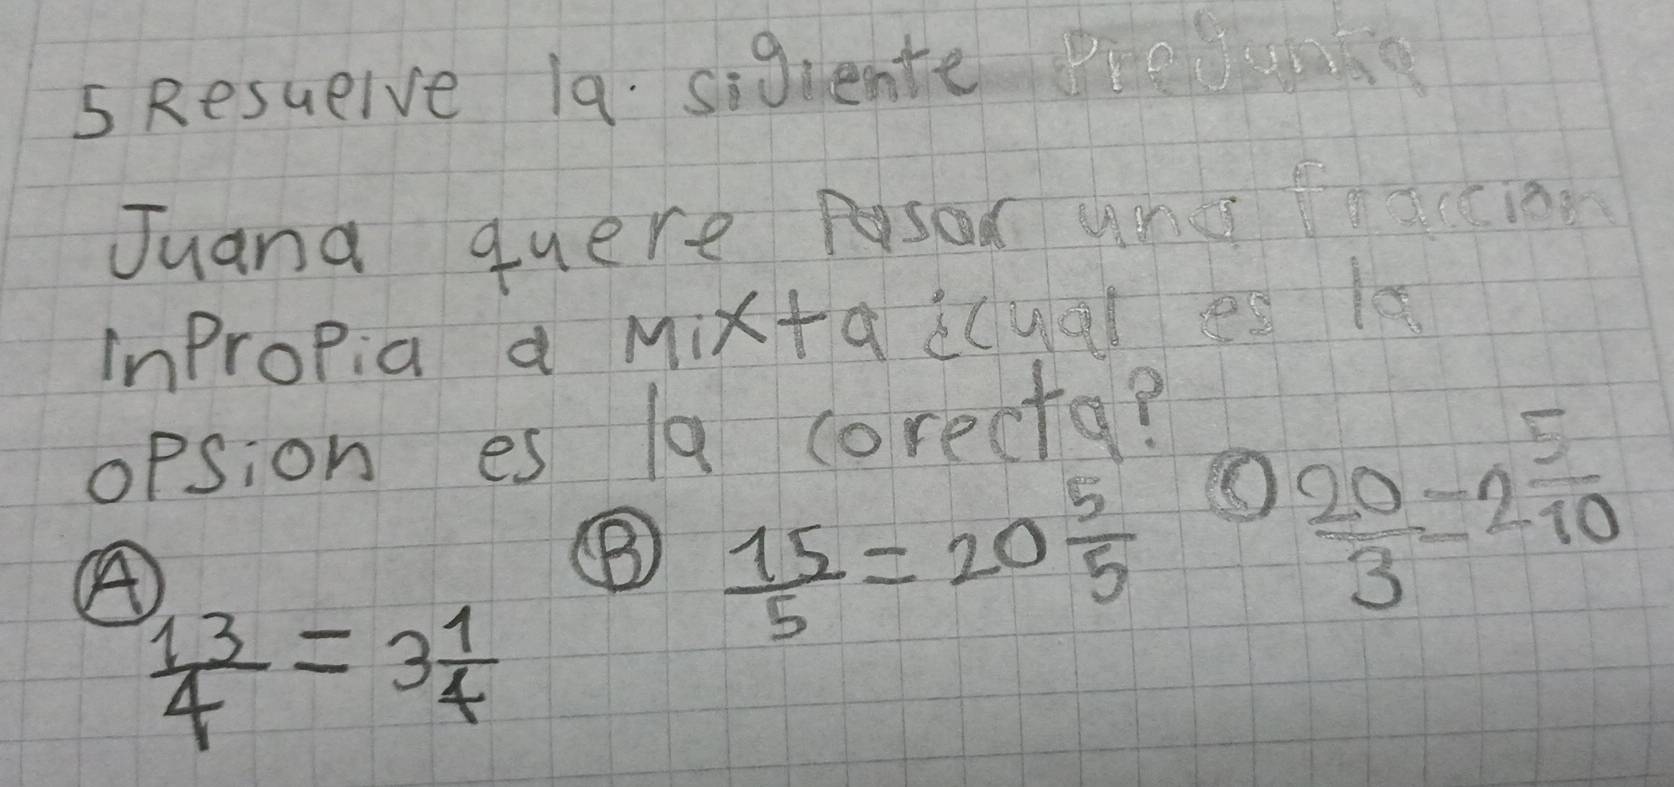 5 Resuelve la. sigiente Pregunta
Juana quere Pasar una fraccion
inPropia a Mixta ¿cual es la
oPsion es la corecta?
Ⓐ 13/4 = 3 1/4
Ⓑ 15/5 = 20 5/5
Ⓒ 20/3 = 2 5/10